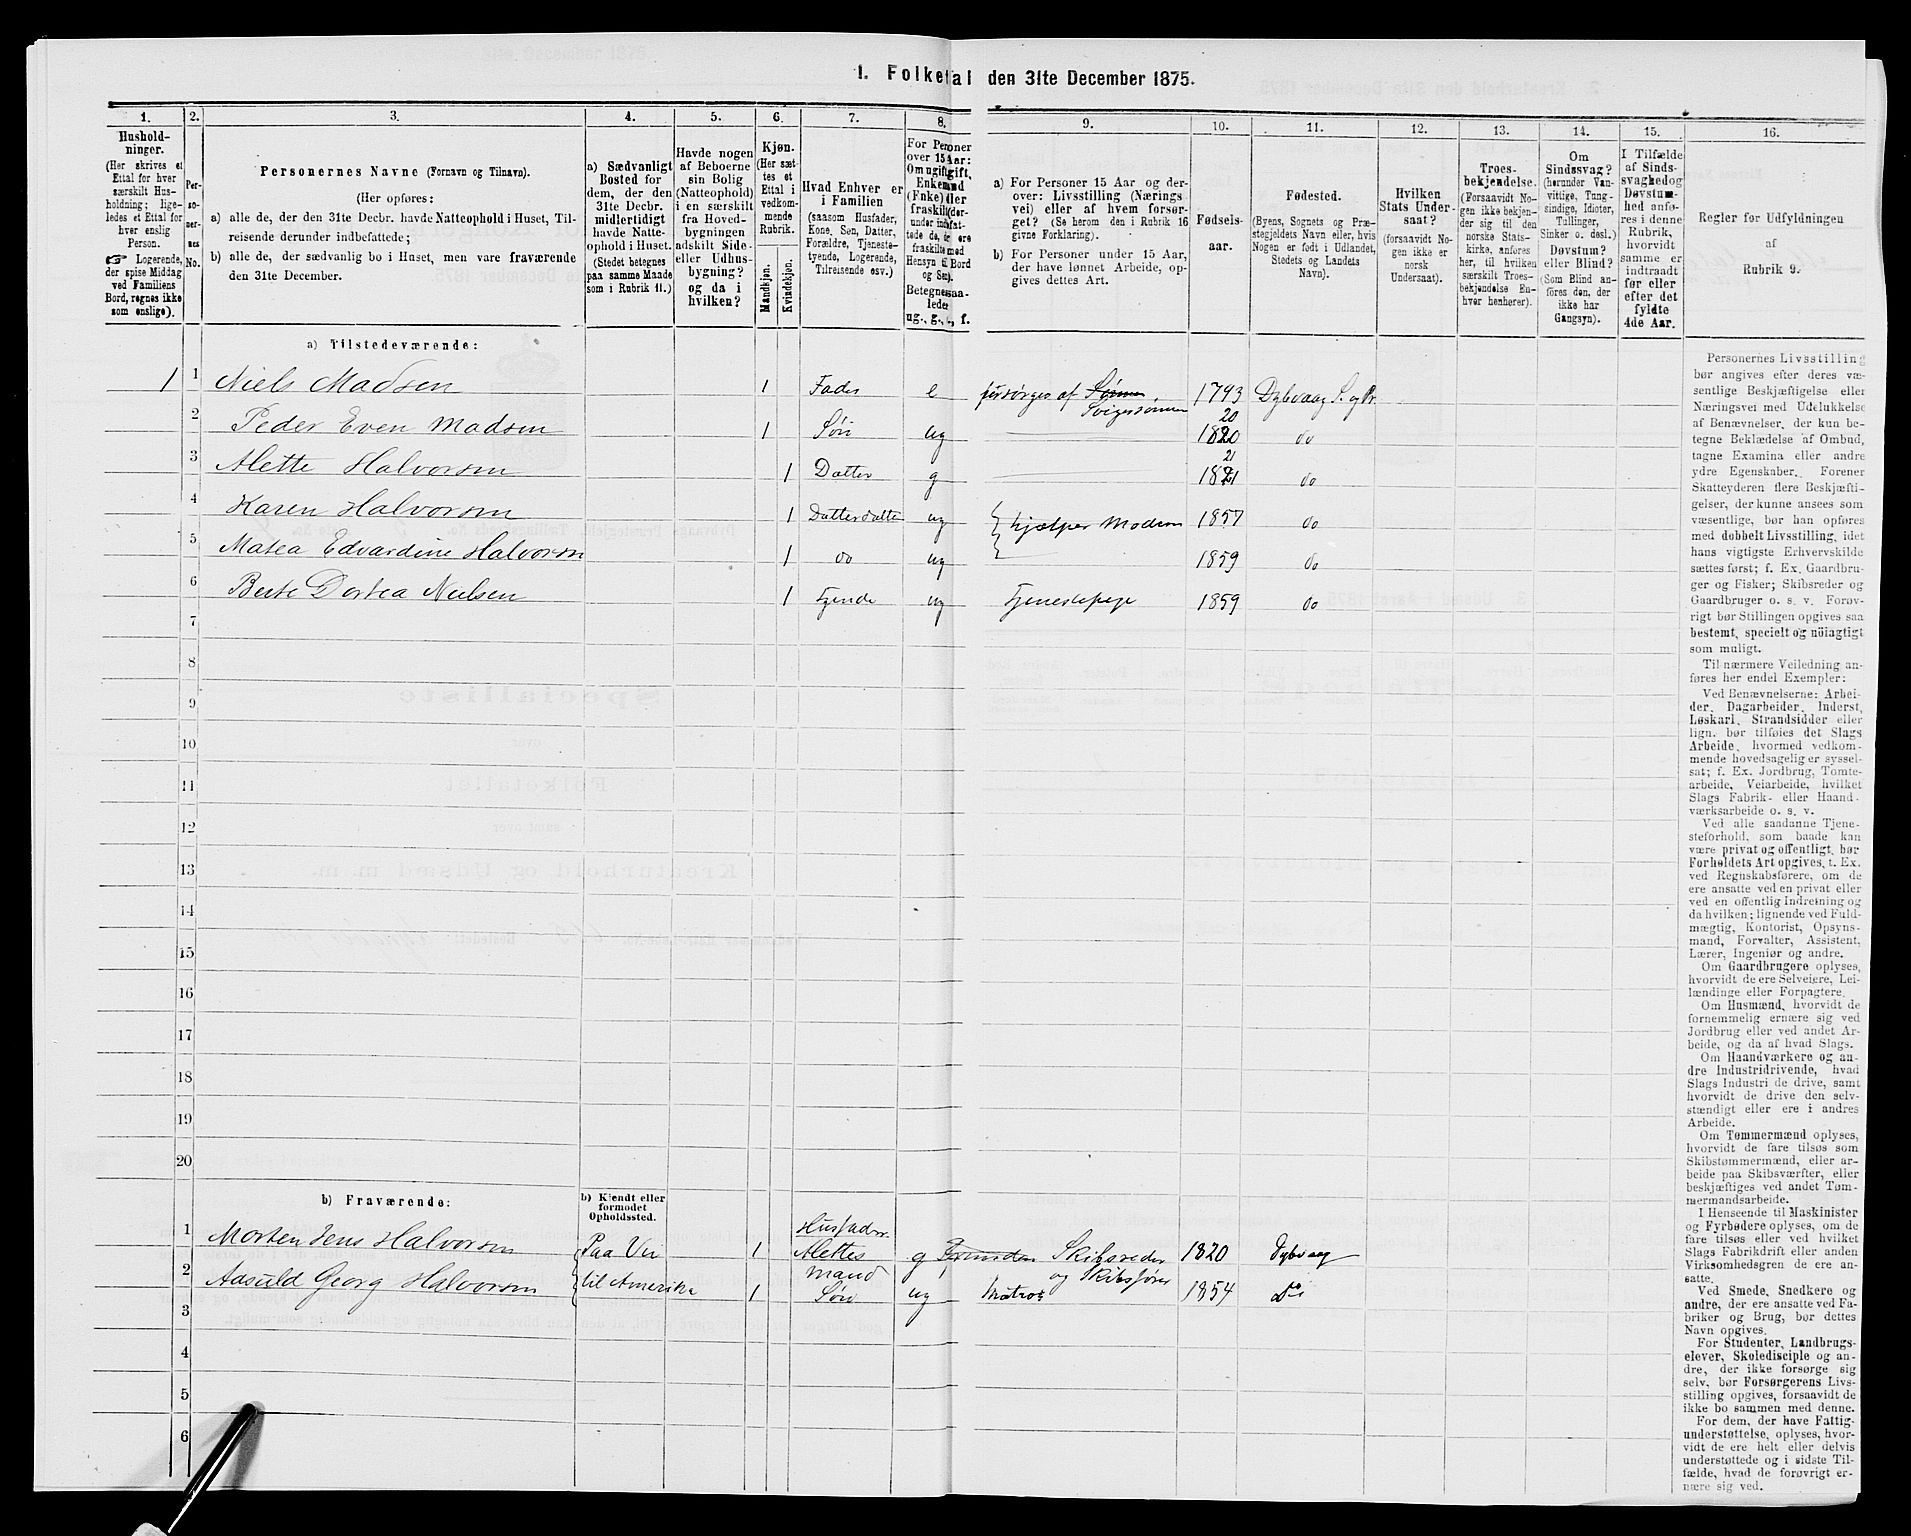 1. Folketal den 31te December 1875.
1. 2. 3. 4. 5. 6. 7. 8. 9. 10. 11. 12. 13. 14. 15. 16.
Hushold-
ninger.
(Her skrives et
Ettal for hver
særskilt Hus-
holdning; lige-
ledes et Ettal for
hver enslig
Person.
☞ Logerende,
der spise Middag
ved Familiens
Bord, regnes ikke
som enslige).
Per-
so-
ner-
nes
No.
Personernes Navne (Fornavn og Tilnavn).
(Her opføres:
a) alle de, der den 31te Decbr. havde Natteophold i Huset, Til-
reisende derunder indbefattede;
b) alle de, der sædvanlig bo i Huset, men vare fraværende
den 31te December.
a) Sædvanligt
Bosted for
dem, der den
31te Decbr.
midlertidigt
havde Natte-
ophold i Huset.
(Stedet betegnes
paa samme Maade
som i Rubrik 11.)
Havde nogen
af Beboerne
sin Bolig
(Natteophold)
i en særskilt
fra Hoved-
bygningen
adskilt Side-
eller Udhus-
bygning?
og da i
hvilken?
Kjøn.
(Her sæt-
tes et
Ettal i
vedkom-
mende
Rubrik.
Mandkjøn.
Kvindekjøn.
Hvad Enhver er
i Familien
(saasom Husfader,
Kone, Søn, Datter,
Forældre, Tjeneste-
tyende, Logerende,
Tilreisende osv.)
For Personer
over 15 Aar:
Om ugift, gift,
Enkemand
(Enke) eller
fraskilt
Betegnes saa-
ledes:
ug., g., e., f.
a) For Personer 15 Aar og der-
over: Livsstilling (Nærings-
vei) eller af hvem forsør-
get? (Se herom den i Rubrik 16
givne Forklaring).
b) For Personer under 15 Aar,
der have lønnet Arbeide, op-
gives dettes Art.
Fødsels-
aar.
Fødested.
(Byens, Sognets og Præ-
stegjeldets Navn eller, hvis
Nogen er født i Udlandet,
Stedets og Landets
Navn).
Hvilken
Stats Under-
saat?
(forsaavidt No-
gen ikke er
norsk
Undersaat).
Troes-
bekjendelse.
(Forsaavidt No-
gen ikke bekjen-
der sig til den
norske Stats-
kirke, anføres
her, til hvilken
særskilt Troes-
bekjendelse En-
hver henhører).
Om
Sindssvag?
(herunder Van-
vittige, Tung-
sindige, Idioter,
Tullinger,
Sinker o. desl.)
Døvstum?
eller Blind?
(Som Blind an-
føres den, der
ikke har
Gangsyn).
I Tilfælde
af Sinds-
svaghed og
Døvstum-
hed anfø-
res i denne
Rubrik,
hvorvidt
samme er
indtraadt
før eller
efter det
fyldte
4de Aar.
Regler for Udfyldningen
af
Rubrik 9.
a) Tilstedeværende:
1 1 Niels Madsen 1 Fader e forsørges af Sønnen Svigersønnen 1793 Dybvaag S. og Pr.
2 Peder Even Madsen 1 Søn ug 1820 20 do
3 Alette Halvorsen 1 Datter g 1821 21 do
4 Karen Halvorsen 1 Datterdatter ug { hjælper Modren 1857 do
5 Matea Edvardine Halvorsen 1 do ug 1859 do
6 Berte Dortea Nielsen 1 Tjende ug Tjenestepige 1859 do
7
8
9
10
11
12
13
14
15
16
17
18
19
20
b) Fraværende:
b) Kjendt eller
formodet
Opholdssted.
1 Morten Jens Halvorsen Paa Vei 1 Husfader Alettes Mand g Skibsreder og Skibsfører 1820 Dybvaag
2 Aasuld Georg Halvorsen til Amerika 1 Søn ug Matros 1854 do
3
4
5
6
Personernes Livsstilling
bør angives efter deres væ-
sentlige Beskjæftigelse eller
Næringsvei med Udelukkelse
af Benævnelser, der kun be-
tegne Beklædelse af Ombud,
tagne Examina eller andre
ydre Egenskaber. Forener
Skatteyderen flere Beskjæfti-
gelser, der kunne ansees som
væsentlige, bør han opføres
med dobbelt Livsstilling, idet
hans vigtigste Erhvervskilde
sættes først; f. Ex. Gaardbru-
ger og Fisker; Skibsreder og
Gaardbruger o. s. v. Forøv-
rigt bør Stillingen opgives saa
bestemt, specielt og nöiagtigt
som muligt.
Til nærmere Veiledning an-
føres her endel Exempler:
Ved Benævnelserne: Arbei-
der, Dagarbeider, Inderst,
Løskarl, Strandsidder eller
lign. bør tilføies det Slags
Arbeide, hvormed vedkom-
mende hovedsagelig er syssel-
sat; f. Ex. Jordbrug, Tomte-
arbeide, Veiarbeide, hvilket
Slags Fabrik- eller Haand-
værksarbeide o. s. v.
Ved alle saadanne Tjene-
steforhold, som baade kan
være privat og offentligt, bør
Forholdets Art opgives, t. Ex.
ved Regnskabsførere, om de
ere ansatte ved en privat eller
ved en offentlig Indretning og
da hvilken; lignende ved Fuld-
mægtig, Kontorist, Opsyns-
mand, Forvalter, Assistent,
Lærer, Ingeniør og andre.
Om Gaardbrugere oplyses,
hvorvidt de ere Selveiere, Lei-
lændinge eller Forpagtere.
Om Husmænd, hvorvidt de
fornemmelig ernære sig ved
Jordbrug eller ved andet Ar-
beide, og da af hvad Slags.
Om Haandværkere og an-
dre Industridrivende, hvad
Slags Industri de drive, samt
hvorvidt de drive den selv-
stændigt eller ere i andres
Arbeide.
Om Tømmermænd oplyses,
hvorvidt de fare tilsøs som
Skibstømmermænd, eller ar-
beide paa Skibsværfter, eller
beskjæftiges ved andet Tøm-
mermandsarbeide.
I Henseende til Maskinister
og Fyrbødere oplyses, om de
fare tilsøs eller ved hvilket
Slags Fabrikdrift eller anden
Virksomhedsgren de ere an-
satte.
Ved Smede, Snedkere og
andre, der ere ansatte ved Fa-
briker og Brug, bør dettes
Navn opgives.
For Studenter, Landbrugs-
elever, Skoledisciple og an-
dre, der ikke forsørge sig
selv, bør Forsørgerens Livs-
stilling opgives, forsaavidt de
ikke bo sammen med denne.
For dem, der have Fattig-
understøttelse, oplyses, hvor-
vidt de ere helt eller delvis
understøttede og i sidste Til-
fælde, hvad de forøvrigt er-
nære sig ved.